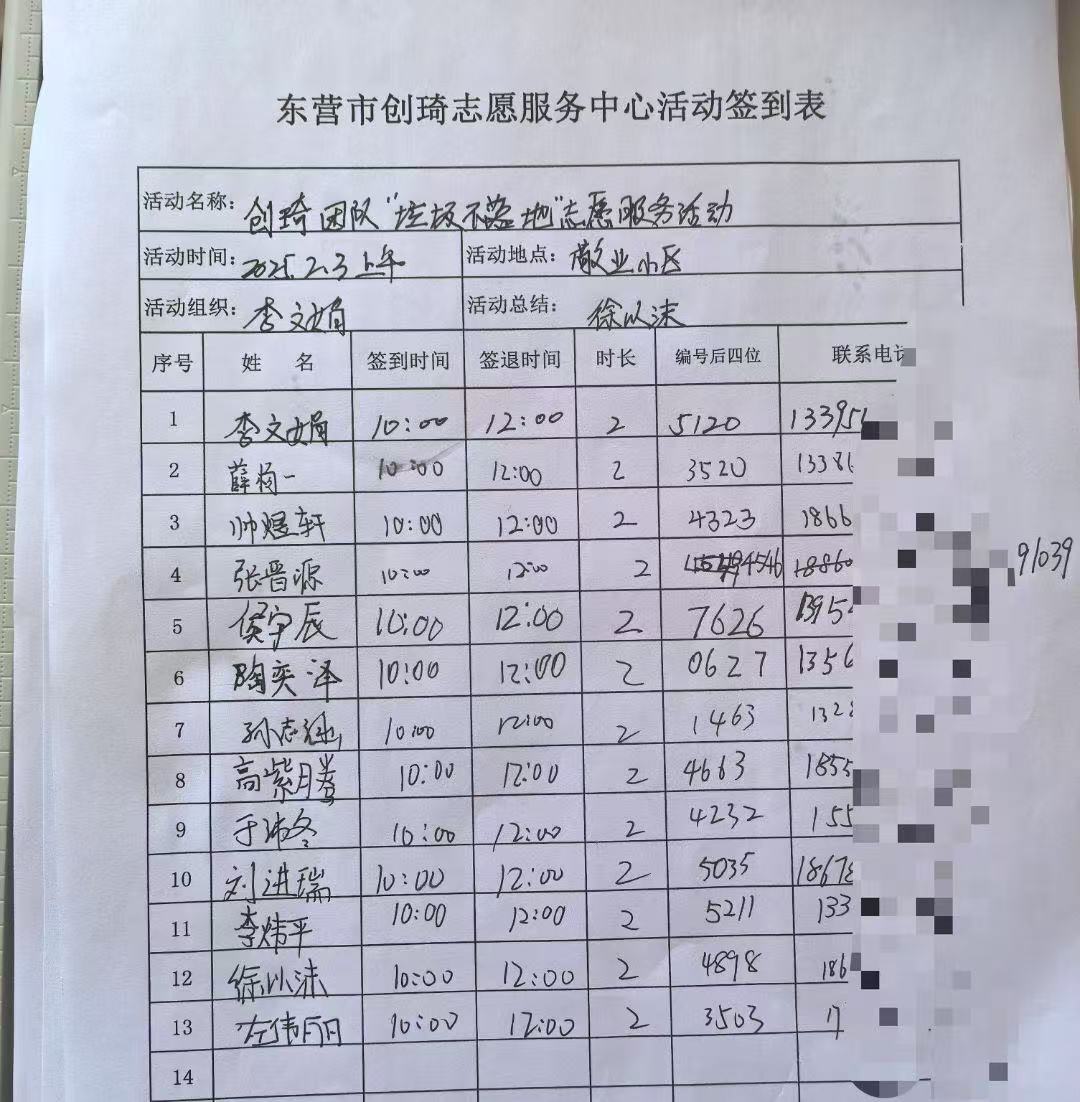 东营市创琦志愿服务中心活动签到表
活动名称：创琦团队“垃圾不落地”志愿服务活动
活动时间：2025.2.3上午 活动地点：敬业小区
活动组织：李文娟 活动总结：徐以沫
序号 姓 名 签到时间 签退时间 时长 编号后四位 联系电话
1 李文娟 10:00 12:00 2 5120 13395
2 薛 一 10:00 12:00 2 3520 1338
3 帅煜轩 10:00 12:00 2 4323 1866
4 张晋源 10:00 12:00 2 4546 18860 91039
5 侯宇辰 10:00 12:00 2 7626 1395
6 陶奕泽 10:00 12:00 2 0627 1356
7 孙志 10:00 12:00 2 1463 132
8 高紫腾 10:00 12:00 2 4663 1855
9 于沛冬 10:00 12:00 2 4232 155
10 刘进瑞 10:00 12:00 2 5035 1867
11 李炜平 10:00 12:00 2 5211 133
12 徐以沫 10:00 12:00 2 4898 186
13 左伟丽 10:00 12:00 2 3503 17
14